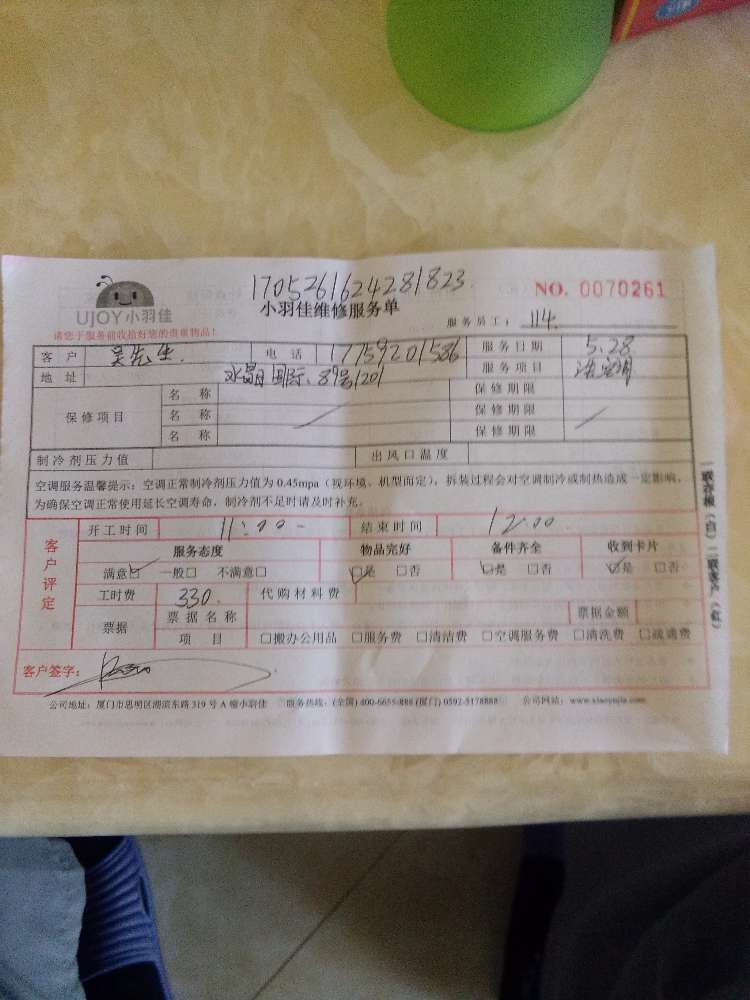 1705261624281823
UJOY小羽佳
小羽佳维修服务单
NO. 0070261
请您于服务前收拾好您的贵重物品!
服务员工: 114.
客 户 吴先生 电 话 17759201586 服务日期 5.28
地 址 水晶国际. 89号1201 服务项目
保修项目
名 称 保修期限
名 称 保修期限
名 称 保修期限
制冷剂压力值 出风口温度
空调服务温馨提示: 空调正常制冷剂压力值为 0.45mpa (视环境、机型而定), 拆装过程会对空调制冷或制热造成一定影响,
为确保空调正常使用延长空调寿命, 制冷剂不足时请及时补充.
客户评定
开工时间 11:00 结束时间 12:00
服务态度 物品完好 备件齐全 收到卡片
满意☑ 一般□ 不满意□ ☑是 □否 ☑是 □否 ☑是 □否
工时费 330. 代购材料费
票据 票据名称 票据金额
项 目 □搬办公用品 □服务费 □清洁费 □空调服务费 □清洗费 □疏通费
客户签字:
公司地址: 厦门市思明区湖滨东路 319 号 A 幢小羽佳 服务热线: (全国) 400-6655-888 (厦门) 0592-5178888 公司网站: www.xiaoyujia.com
一联存根 (白) 二联客户 (红)